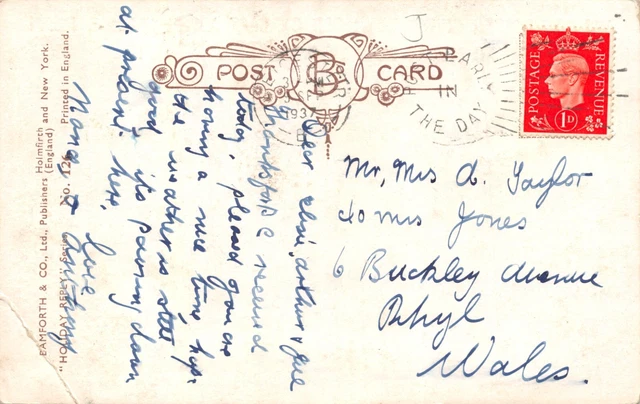 POST CARD
EARLY
IN
THE DAY
1937
POSTAGE
REVENUE
1D
J
Mr, Mrs A. Taylor
to Mrs Jones
6 Buckley Avenue
Rhyl
Wales.
Dear Elsie, Arthur & Sue
thanks for P.C. received
today, pleased you are
having a nice time hope
the weather is still
good its pouring down
at present here.
love
Nana & 
BAMFORTH & CO., Ltd., Publishers Holmfirth (England) and New York.
"HOLIDAY REPLY" Series No. 126 Printed in England.